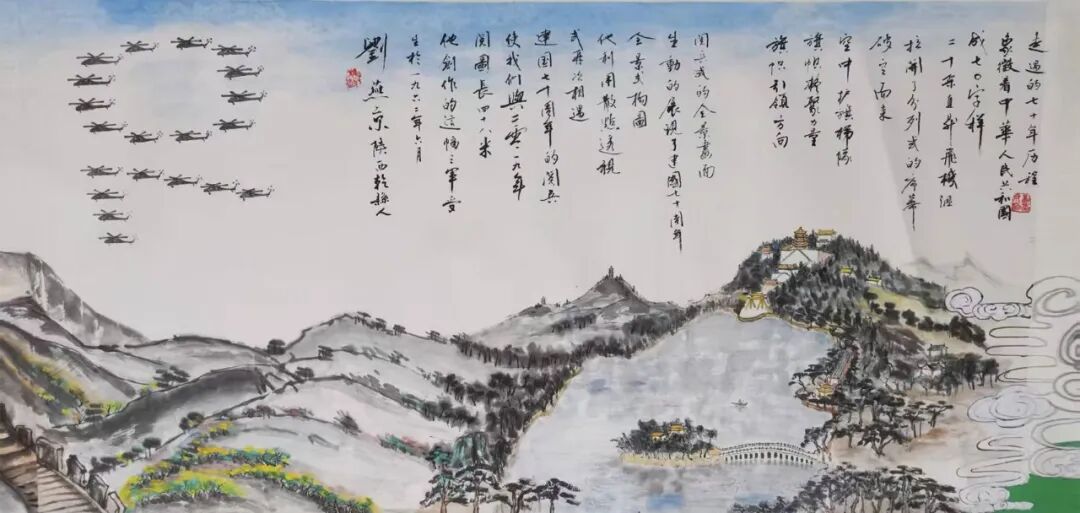 劉燕京陕西乾縣人
生於一九六三年六月
他創作的這幅三軍受
阅圖長四十八米
使我们與二零一九年
建国七十周年的阅兵
式再次相遇
他利用散點透視
全景式构圖
生動的展現了建國七十周年
阅兵式的全景畫面
旗帜引领方向
旗帜凝聚力量
空中护旗梯隊
破空而来
拉開了分列式的序幕
二十架直升飞機组
成七〇字样
象徵着中華人民共和國
走过的七十年历程